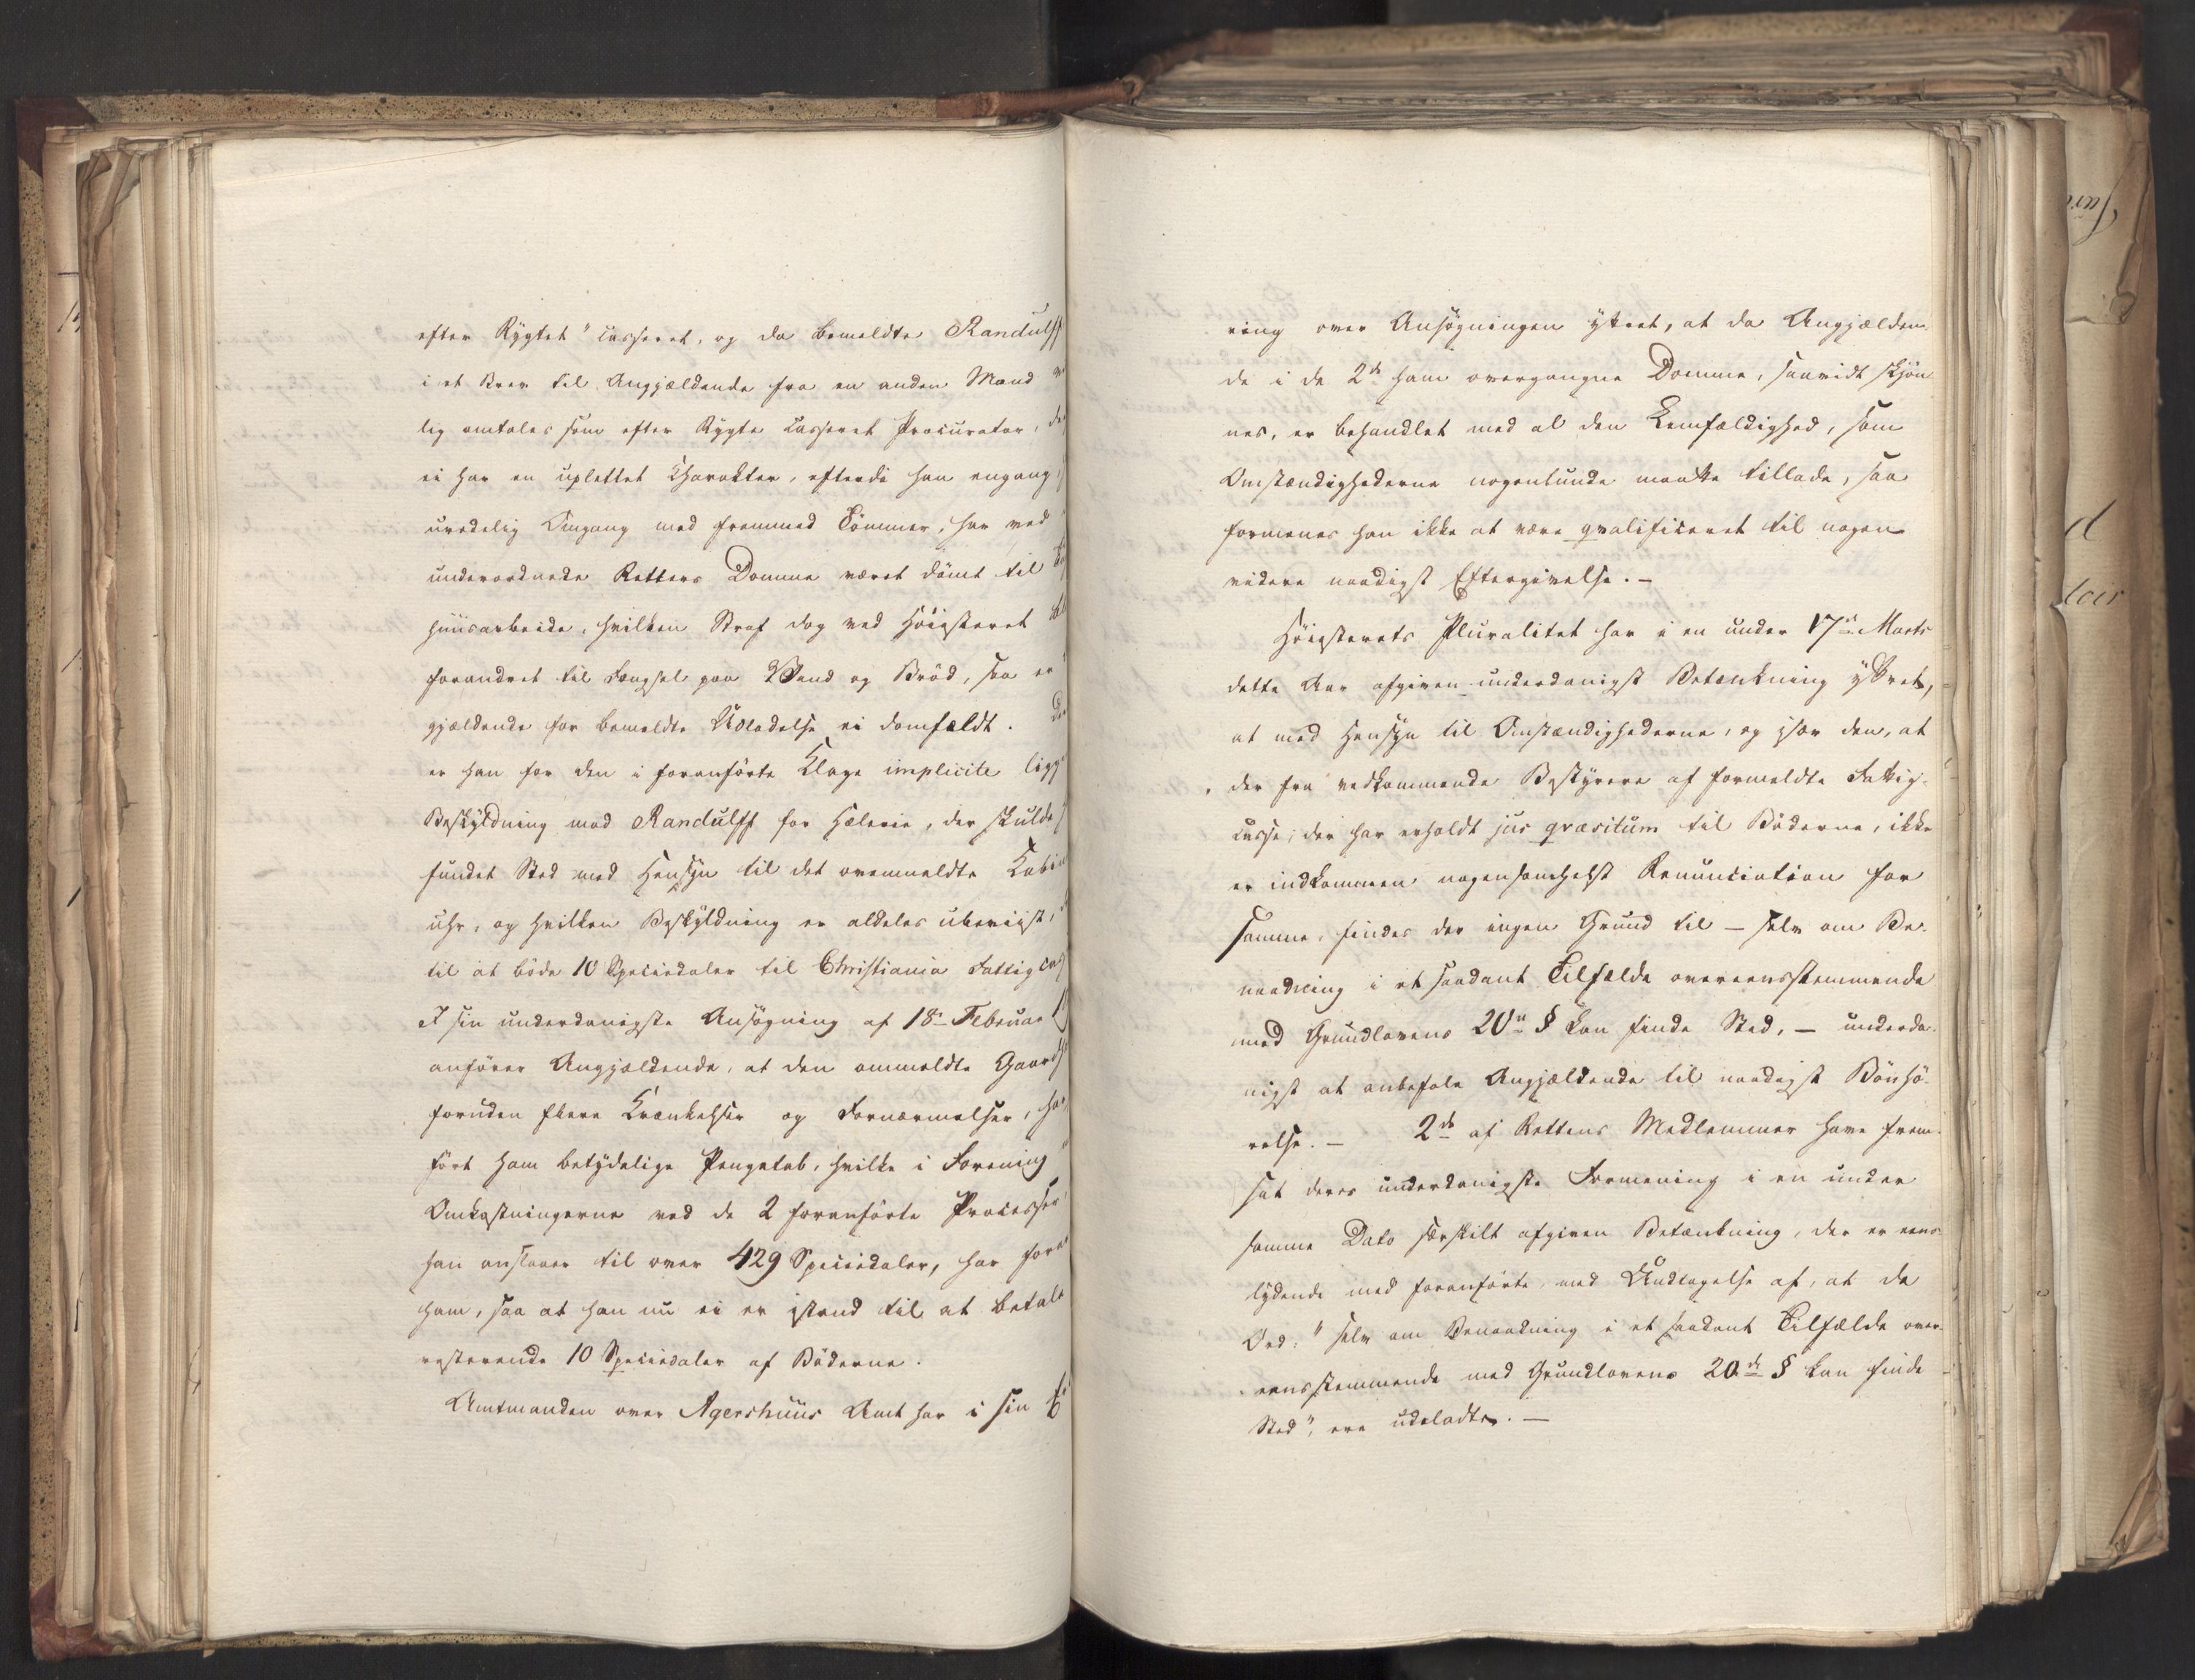 efter Rygtet" casseret, og da bemeldte Randulff
i et Brev til Angjældende fra en anden Mand
lig omtales som efter Rygte casseret Procurator,
ei har en uplettet Charakter, efterdi han engang
uredelig Omgang med fremmed Tömmer, har ved
underordnede Retters Domme været dömt til
huusarbeide, hvilken Straf dog ved Höiesteret
forandret til Fængsel paa Vand og Bröd, saa er
gjældende for bemeldte Udladelse ei domfældt.
er han for den i foranförte Klage implicite ligg
Beskyldning mod Randulff for Hæleri, der skulde
fundet Sted med Hensyn til det ovenmeldte
uhr, og hvilken Beskyldning er aldeles ubeviist,
til at böde 10 Speciedaler til Christiania Fattigcas
I sin underdanigste Ansögning af 18de Februar
anförer Angjældende, at den ommeldte Gaard
foruden flere Krænkelser og Fornærmelser, har
fört ham betydelige Pengetab, hvilke i Forening
Omkostningerne ved de 2 foranförte Processer
han anslaaer til over 429 Speciedaler, har
ham, saa at han nu ei er istand til at betale
resterende 10 Speciedaler af Böderne.
Amtmanden over Agershuus Amt har i sin
ring over Ansögningen yttret, at da Angjælden
de i de 2de ham overgangne Domme, saavidt skjön
nes, er behandlet med al den Lemfældighed, som
Omstændighederne nogenlunde maatte tillade, saa
formenes han ikke at være qvalificeret til nogen
videre naadigst Eftergivelse. -
Höiesterets Pluralitet har i en under 17de Marts
dette Aar afgiven underdanigst Betænkning yttret,
at med Hensyn til Omstændighederne, og især den, at
der fra vedkommende Bestyrere af formeldte Fattig-
casse, der har erholdt jus qvæsitum til Böderne, ikke
er indkommen nogensomhelst Renunciation for
samme, findes der ingen Grund til - selv om Be-
naadning i et saadant Tilfælde overeensstemmende
med Grundlovens 20de § kan finde Sted, - underda-
nigst at anbefale Angjældende til naadigst Bönhö-
relse. - 2de af Rettens Medlemmer have frem-
sat deres underdanigste Formening i en under
samme Dato særskilt afgiven Betænkning, der er eens-
lydende med foranförte, med Undtagelse af, at de
Ord: "selv om Benaadning i et saadant Tilfælde over-
eensstemmende med Grundlovens 20de § kan finde
Sted", ere udeladte. -